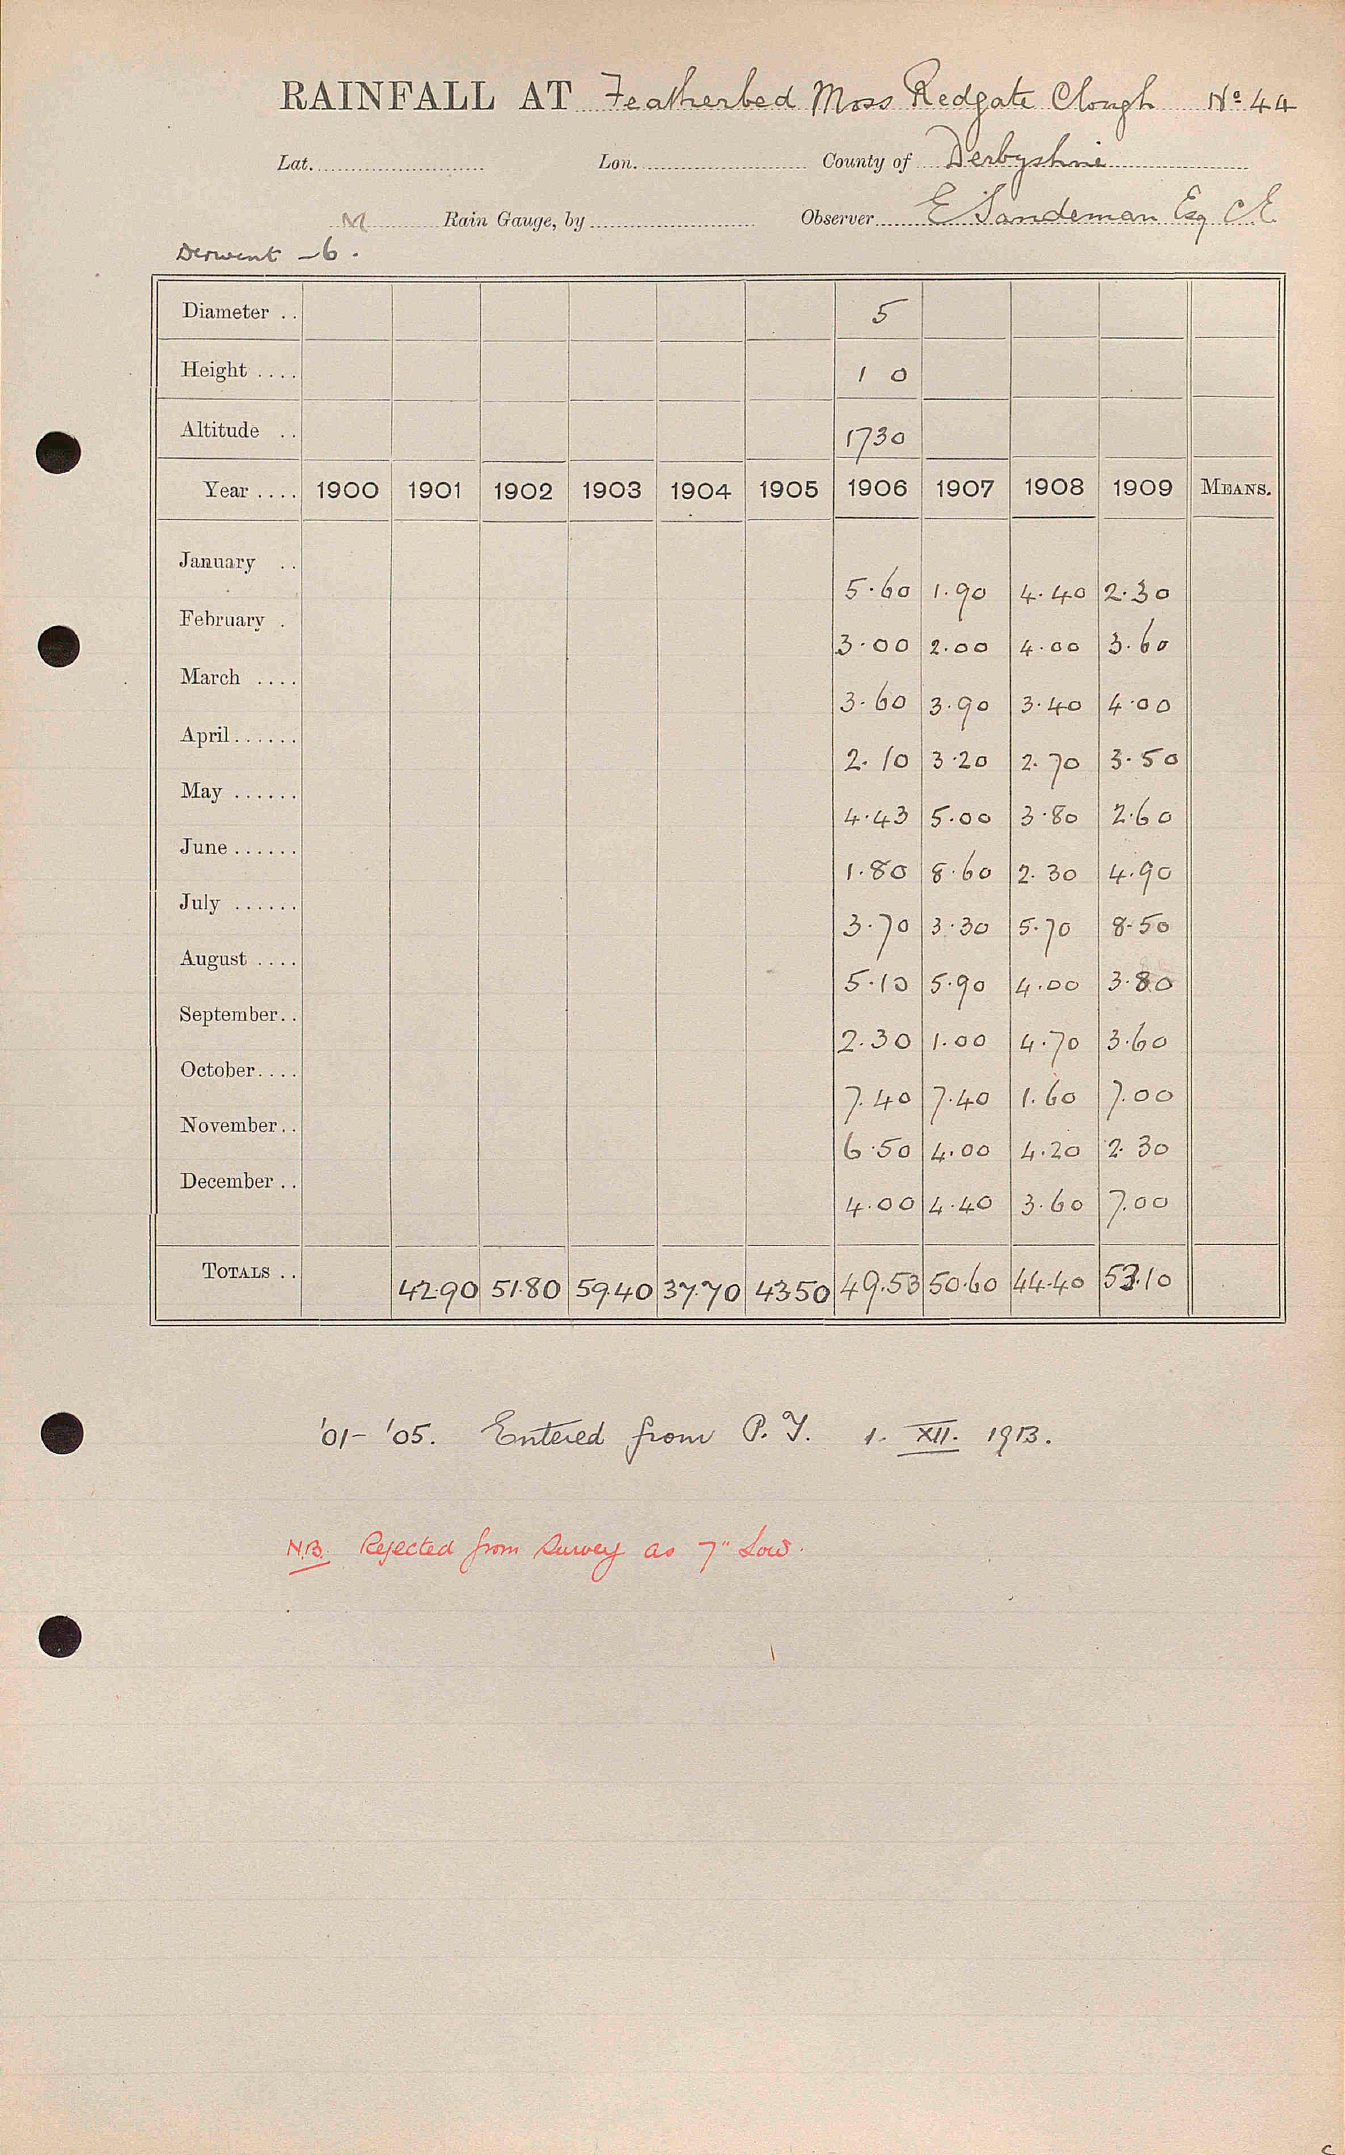 RAINFALL AT Featherbed Moss Redgate Clough No 44
Lat. Lon. County of Derbyshire
M Rain Gauge, by Observer E Sandeman Esq CE
Derwent - 6.
Diameter . . 5
Height . . . . 1 0
Altitude . . 1730
Year . . . . 1900 1901 1902 1903 1904 1905 1906 1907 1908 1909 MEANS.
January . . 5.60 1.90 4.40 2.30
February . 3.00 2.00 4.00 3.60
March . . . . 3.60 3.90 3.40 4.00
April . . . . . . 2.10 3.20 2.70 3.50
May . . . . . . 4.43 5.00 3.80 2.60
June . . . . . . 1.80 8.60 2.30 4.90
July . . . . . . 3.70 3.30 5.70 8.50
August . . . . 5.10 5.90 4.00 3.80
September. . 2.30 1.00 4.70 3.60
October. . . . 7.40 7.40 1.60 7.00
November. . 6.50 4.00 4.20 2.30
December . . 4.00 4.40 3.60 7.00
TOTALS . . 42.90 51.80 59.40 37.70 43.50 49.53 50.60 44.40 53.10
'01 - '05. Entered from P. Y. 1. XII. 1913.
N.B. Rejected from Survey as 7" Low.